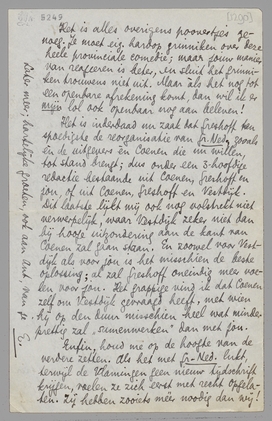 5249
Het is alles overigens poovertjes ge-
noeg. Je moet erg hardop grinniken over deze
heele provinciale comedie; maar jouw manier
van reageeren is beter, en sluit het grinni-
ken trouwens niet uit. Maar als het nog tot
een openbare afrekening komt, dan wil ik er
mijn lol ook openbaar nog aan beleven!
Het is inderdaad nu zaak dat Greshoff ten
spoedigste de reorganisatie van Gr. Ned., zooals
en de uitgevers en Coenen die nu willen,
tot stand brengt; dus onder een 3-hoofdige
redactie bestaande uit Coenen, Greshoff en
jou, of uit Coenen, Greshoff en Vestdijk.
Dit laatste lijkt mij ook nog volstrekt niet
verwerpelijk, waar Vestdijk zeker niet dan
bij hooge uitzondering aan de kant van
Coenen zal gaan staan. En zoowel voor Vest-
dijk als voor jou is het misschien de beste
oplossing; al zal Greshoff oneindig meer voe-
len voor jou. Het grappige ding is dat Coenen
zelf om Vestdijk gevraagd heeft, met wien
hij op den duur misschien heel wat minder
prettig zal „samenwerken" dan met jou.
Enfin, houd me op de hoogte van de
verdere zetten. Als het met Gr-Ned. lukt,
terwijl de Vlamingen geen nieuw tijdschrift
krijgen, voelen ze zich eerst met recht opgela-
ten. Zij hebben zooiets méér noodig dan wij!
hartelijke groeten, ook aan Ant, van je E.